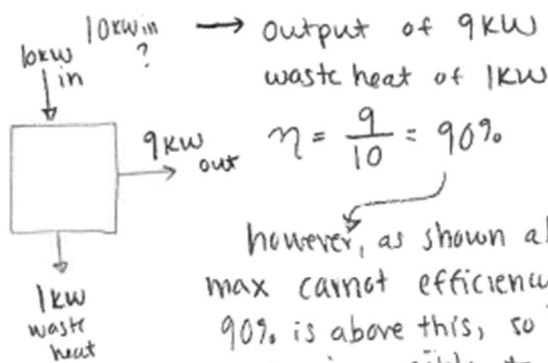 10kW in
?
→ output of 9kW
waste heat of 1kW
10kW
in
9kW
out
η = 9/10 = 90%
however, as shown
max carnot efficiency
90% is above this, so
1kW
waste
heat